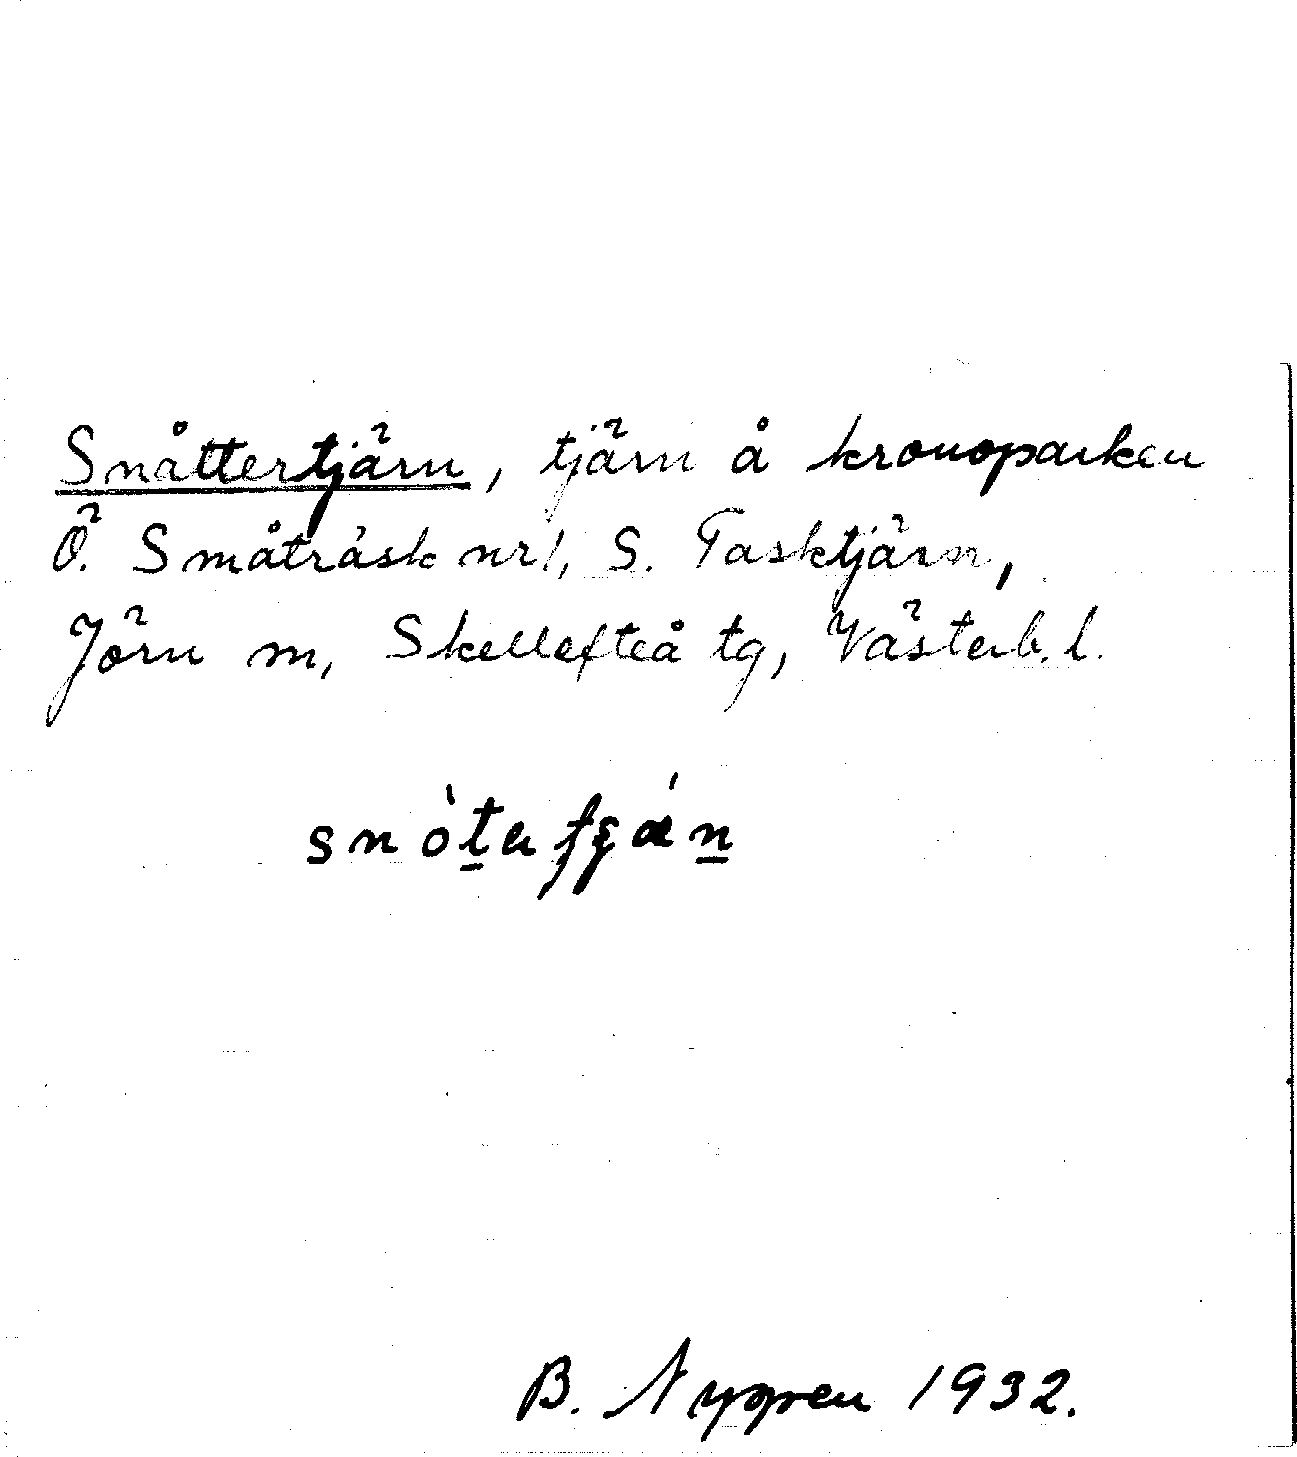 Snåttertjärn, tjärn å kronoparken
Ö. Småträsk nr 1, S. Tasktjärn,
Jörn m, Skellefteå tg, Västerb. l.
B. Nygren 1932.